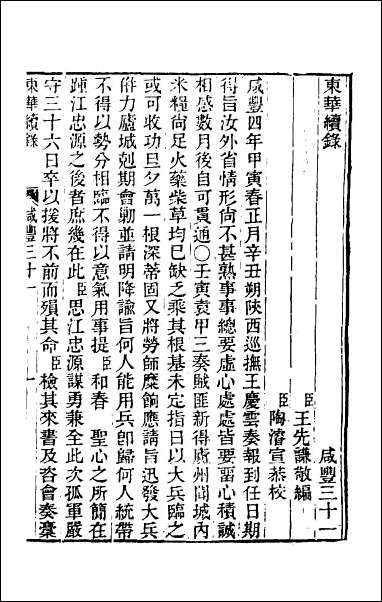 東華續錄　咸豐三十一
臣王先謙敬編
臣陶濬宣恭校
咸豐四年甲寅春正月辛丑朔陝西巡撫王慶雲奏報到任日期
得旨汝外省情形尙不甚熟事事總要虛心處處皆要畱心積誠
相感數月後自可貫通〇壬寅袁甲三奏賊匪新得廬州聞城內
米糧尙足火藥柴草均已缺乏乘其根基未定指日以大兵臨之
或可收功旦夕萬一根深蒂固又將勞師糜餉應請旨迅發大兵
倂力廬城剋期會勦並請明降諭旨何人能用兵卽歸何人統帶
不得以勢分相臨不得以意氣用事提臣和春　聖心之所簡在
踵江忠源之後者庶幾在此臣思江忠源謀勇兼全此次孤軍嚴
守三十六日卒以援將不前而殞其命臣檢其來書及咨會奏稾
東華續錄　咸豐三十一　一